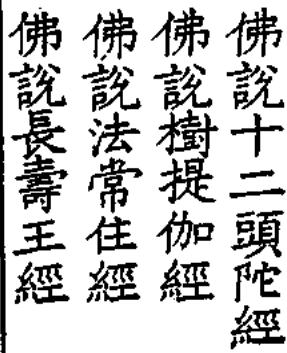 佛說十二頭陀經
佛說樹提伽經
佛說法常住經
佛說長壽王經